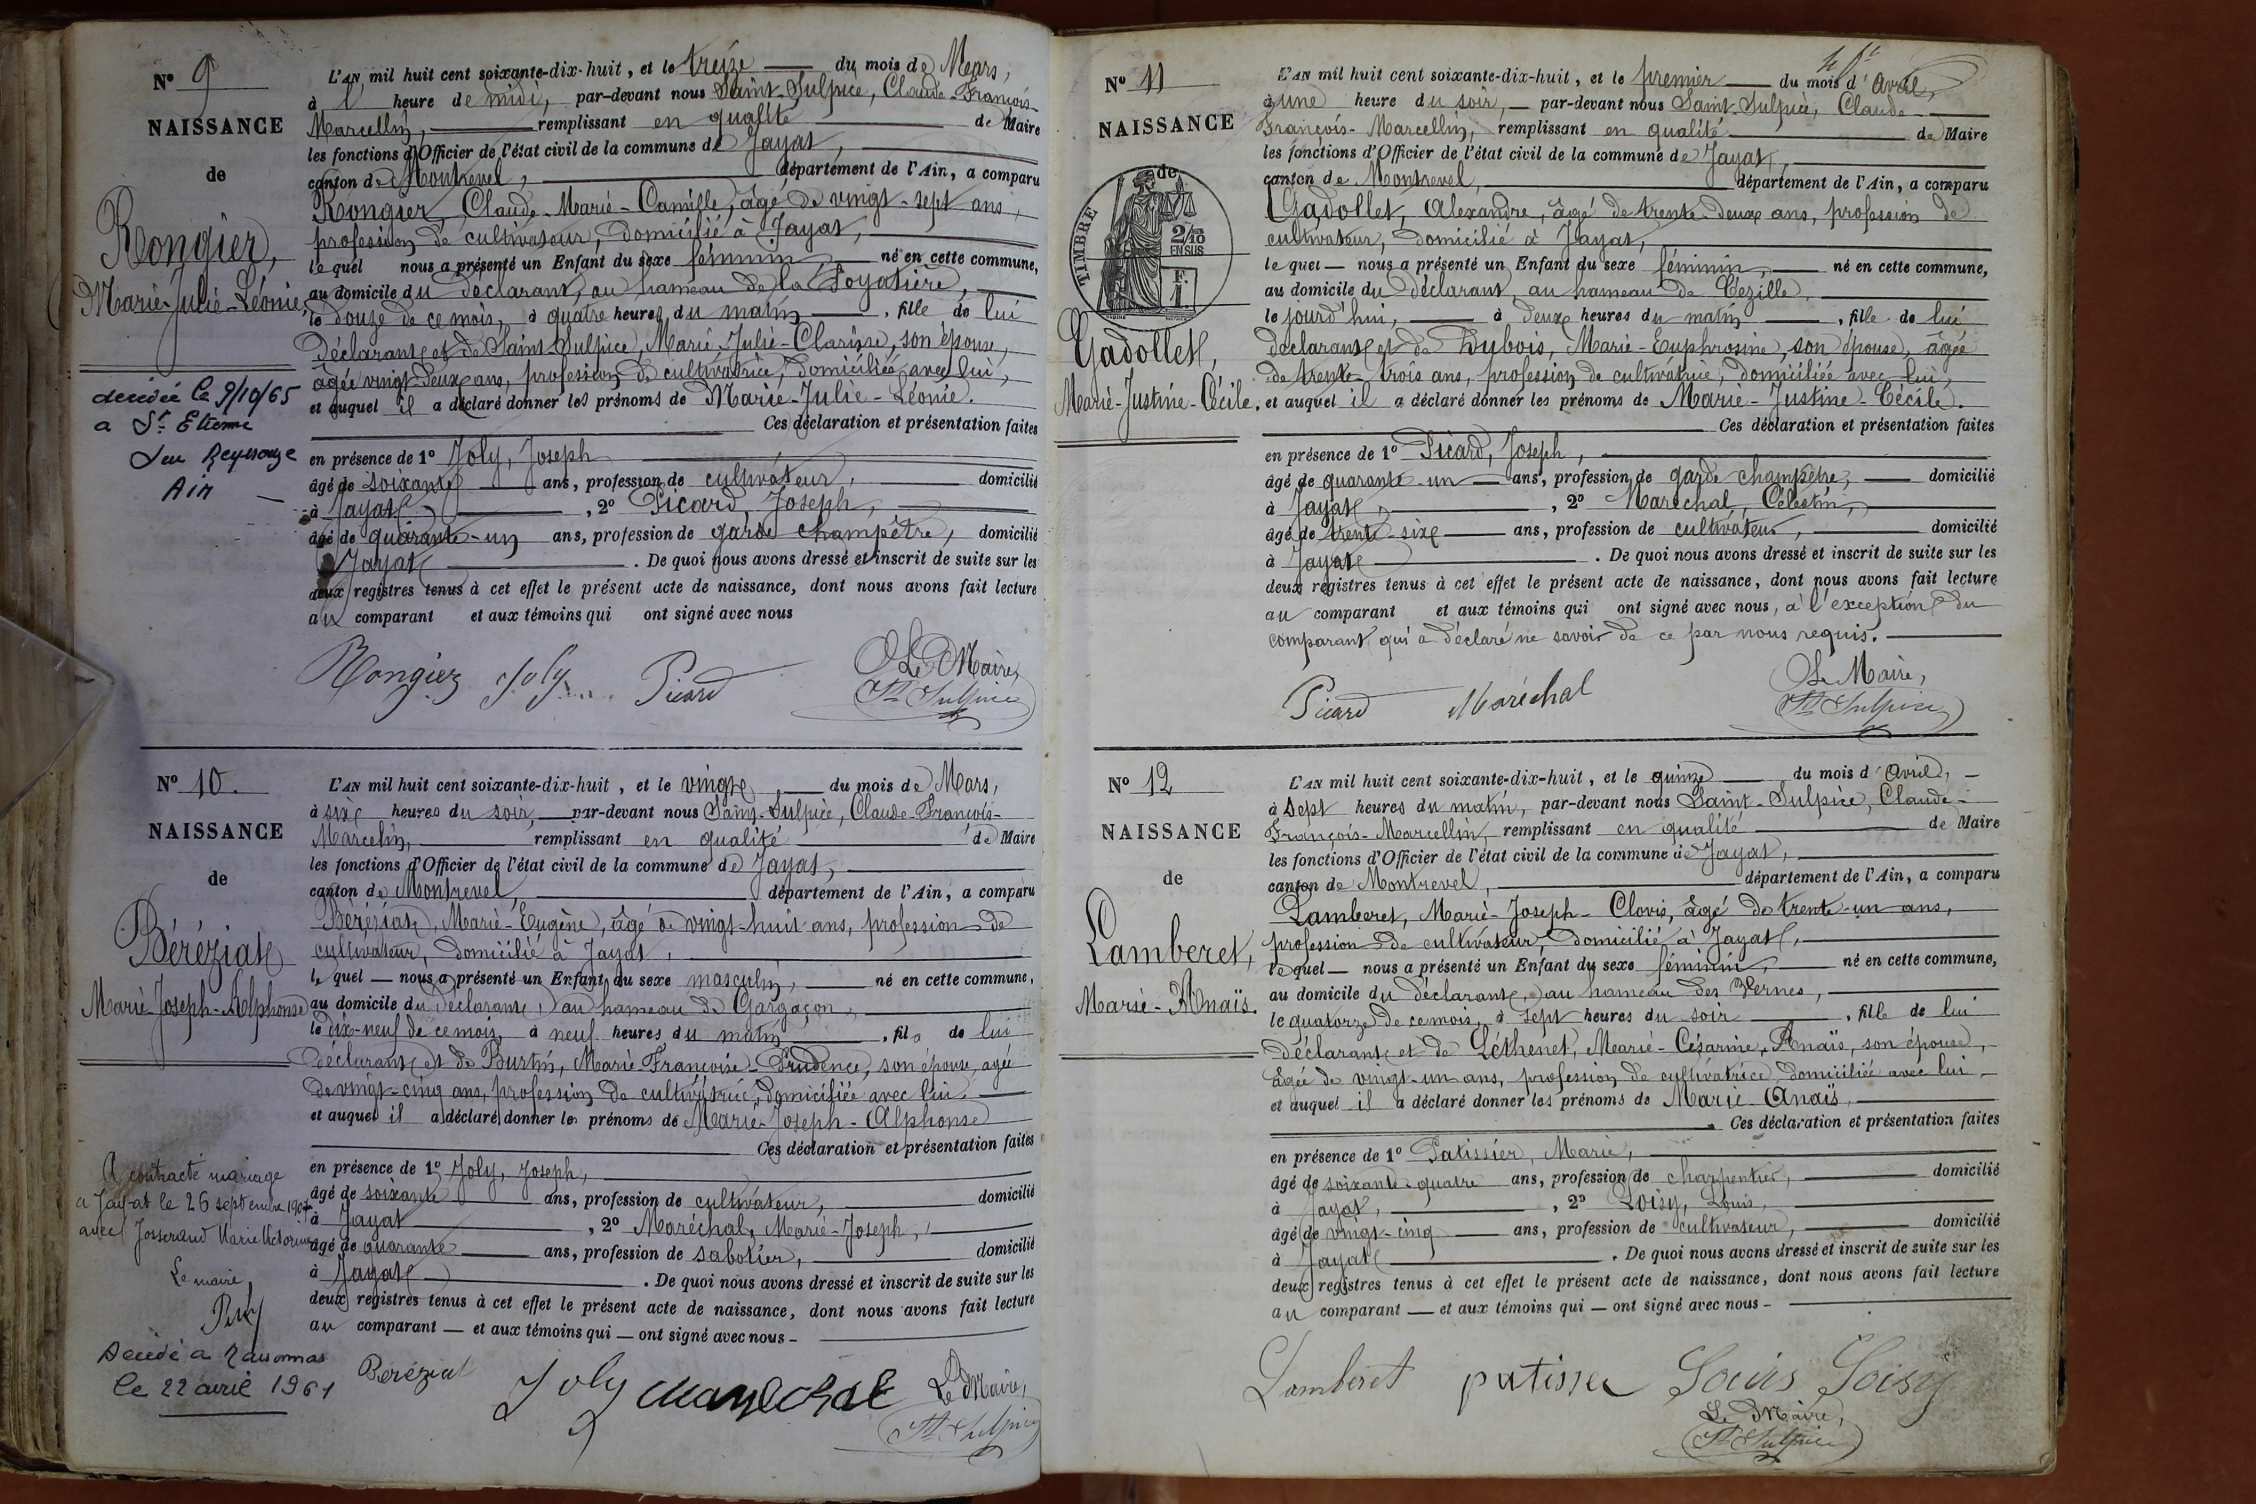 N° 9
NAISSANCE
de
Rongier,
Marie-Julie-Léonie,
décédée le 9/10/65
a St Etienne
Reyssouze
Ain
L'AN mil huit cent soixante-dix-huit, et le treize du mois de Mars,
à l heure de midi, par-devant nous Saint-Sulpice, Claude-François-
Marcellin, remplissant en qualité de Maire
les fonctions d'Officier de l'état civil de la commune de Jayat,
canton de Montrevel, département de l'Ain, a comparu
Rongier, Claude-Marie-Camille, âgé de vingt-sept ans,
profession de cultivateur, domicilié à Jayat,
lequel nous a présenté un Enfant du sexe féminin, né en cette commune,
au domicile du déclarant, au hameau de la
le douze de ce mois, à quatre heures du matin, fille de lui
déclarant et de Saint-Sulpice, Marie-Julie-Clarisse, son épouse,
âgée vingt-deux ans, profession de cultivatrice, domiciliée avec lui,
et auquel il a déclaré donner les prénoms de Marie-Julie-Léonie.
Ces déclaration et présentation faites
en présence de 1° Joly, Joseph
âgé de soixante ans, profession de cultivateur, domicilié
à Jayat, 2° Picard, Joseph,
âgé de quarante-un ans, profession de garde champêtre, domicilié
à Jayat. De quoi nous avons dressé et inscrit de suite sur les
deux registres tenus à cet effet le présent acte de naissance, dont nous avons fait lecture
au comparant et aux témoins qui ont signé avec nous
Rongier Joly Picard Le Maire,
St Sulpice
N° 10.
NAISSANCE
de
Béréziat
Marie-Joseph-Alphonse
A contracté mariage
a Jayat le 26 septembre 1907
avec Josserand Marie Victorine
Le maire
Décédé a
le 22 avril 1961
L'AN mil huit cent soixante-dix-huit, et le vingt, du mois de Mars,
à six heures du soir, par-devant nous Saint-Sulpice, Claude-François-
Marcelin, remplissant en qualité de Maire
les fonctions d'Officier de l'état civil de la commune de Jayat,
canton de Montrevel, département de l'Ain, a comparu
Béréziat, Marie-Eugène, âgé de vingt-huit ans, profession de
cultivateur, domicilié à Jayat,
lequel nous a présenté un Enfant du sexe masculin, né en cette commune,
au domicile du déclarant, au hameau de Gargaçon,
le dix-neuf de ce mois, à neuf heures du matin, fils de lui
déclarant et de Burtin, Marie Françoise-Prudence, son épouse, agée
de vingt-cinq ans, profession de cultivatrice, domiciliée avec lui.
et auquel il a déclaré donner les prénoms de Marie-Joseph-Alphonse
Ces déclaration et présentation faites
en présence de 1° Joly, Joseph,
âgé de soixante ans, profession de cultivateur, domicilié
à Jayat, 2° Maréchal, Marie-Joseph,
âgé de quarante ans, profession de sabotier, domicilié
à Jayat. De quoi nous avons dressé et inscrit de suite sur les
deux registres tenus à cet effet le présent acte de naissance, dont nous avons fait lecture
au comparant et aux témoins qui ont signé avec nous
Béréziat Joly marechal Le Maire,
St Sulpice
N° 11
NAISSANCE
de
TIMBRE
2/10
EN SUS
F.
1.
Gadollet,
Marie-Justine-Cécile.
L'AN mil huit cent soixante-dix-huit, et le premier du mois d'Avril,
à une heure du soir, par-devant nous Saint-Sulpice, Claude
François-Marcellin, remplissant en qualité de Maire
les fonctions d'Officier de l'état civil de la commune de Jayat,
canton de Montrevel, département de l'Ain, a comparu
Gadollet, Alexandre, âgé de trente-deux ans, profession de
cultivateur, domicilié à Jayat,
lequel nous a présenté un Enfant du sexe féminin, né en cette commune,
au domicile du déclarant, au hameau de Cézille,
le jourd'hui, à deux heures du matin, fille de lui
déclarant et de Dubois, Marie-Euphrosine, son épouse, âgée
de trente-trois ans, profession de cultivatrice, domiciliée avec lui,
et auquel il a déclaré donner les prénoms de Marie-Justine-Cécile.
Ces déclaration et présentation faites
en présence de 1° Picard, Joseph,
âgé de quarante-un ans, profession de garde champêtre, domicilié
à Jayat, 2° Maréchal, Célestin,
âgé de trente-six ans, profession de cultivateur, domicilié
à Jayat. De quoi nous avons dressé et inscrit de suite sur les
deux registres tenus à cet effet le présent acte de naissance, dont nous avons fait lecture
au comparant et aux témoins qui ont signé avec nous, à l'exception du
comparant qui a déclaré ne savoir de ce par nous requis.
Picard Maréchal Le Maire,
St Sulpice
N° 12
NAISSANCE
de
Lamberet,
Marie-Anaïs.
L'AN mil huit cent soixante-dix-huit, et le quinze du mois d'Avril,
à sept heures du matin, par-devant nous Saint-Sulpice, Claude-
François-Marcellin, remplissant en qualité de Maire
les fonctions d'Officier de l'état civil de la commune de Jayat,
canton de Montrevel, département de l'Ain, a comparu
Lamberet, Marie-Joseph-Clovis, âgé de trente-un ans,
profession de cultivateur, domicilié à Jayat,
lequel nous a présenté un Enfant du sexe féminin, né en cette commune,
au domicile du déclarant, au hameau des Vernes,
le quatorze de ce mois, à sept heures du soir, fille de lui
déclarant et de Léthenet, Marie-Césarine, Anaïs, son épouse,
âgée de vingt-un ans, profession de cultivatrice, domiciliée avec lui
et auquel il a déclaré donner les prénoms de Marie Anaïs,
Ces déclaration et présentation faites
en présence de 1° Patissier, Marie,
âgé de soixante-quatre ans, profession de charpentier, domicilié
à Jayat, 2° Loisy, Louis,
âgé de vingt-cinq ans, profession de cultivateur, domicilié
à Jayat. De quoi nous avons dressé et inscrit de suite sur les
deux registres tenus à cet effet le présent acte de naissance, dont nous avons fait lecture
au comparant et aux témoins qui ont signé avec nous
Lamberet patissier Louis Loisy
Le Maire,
St Sulpice